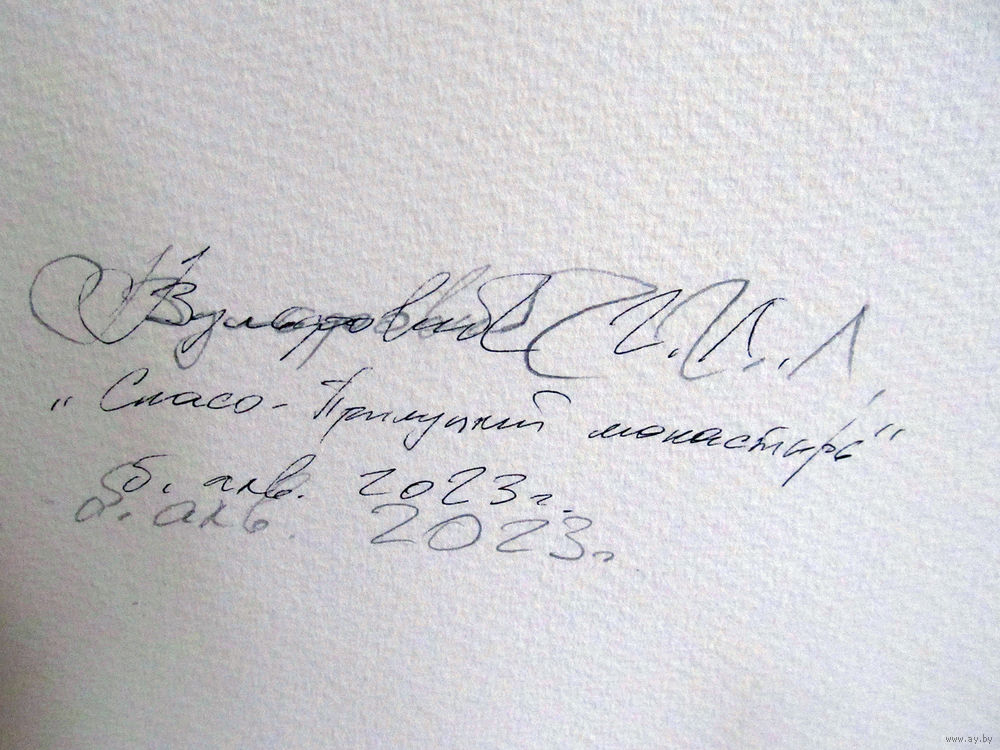 „Спасо-Прилуцкий монастырь“
б. акв. 2023г.
б. акв. 2023г.
www.ay.by